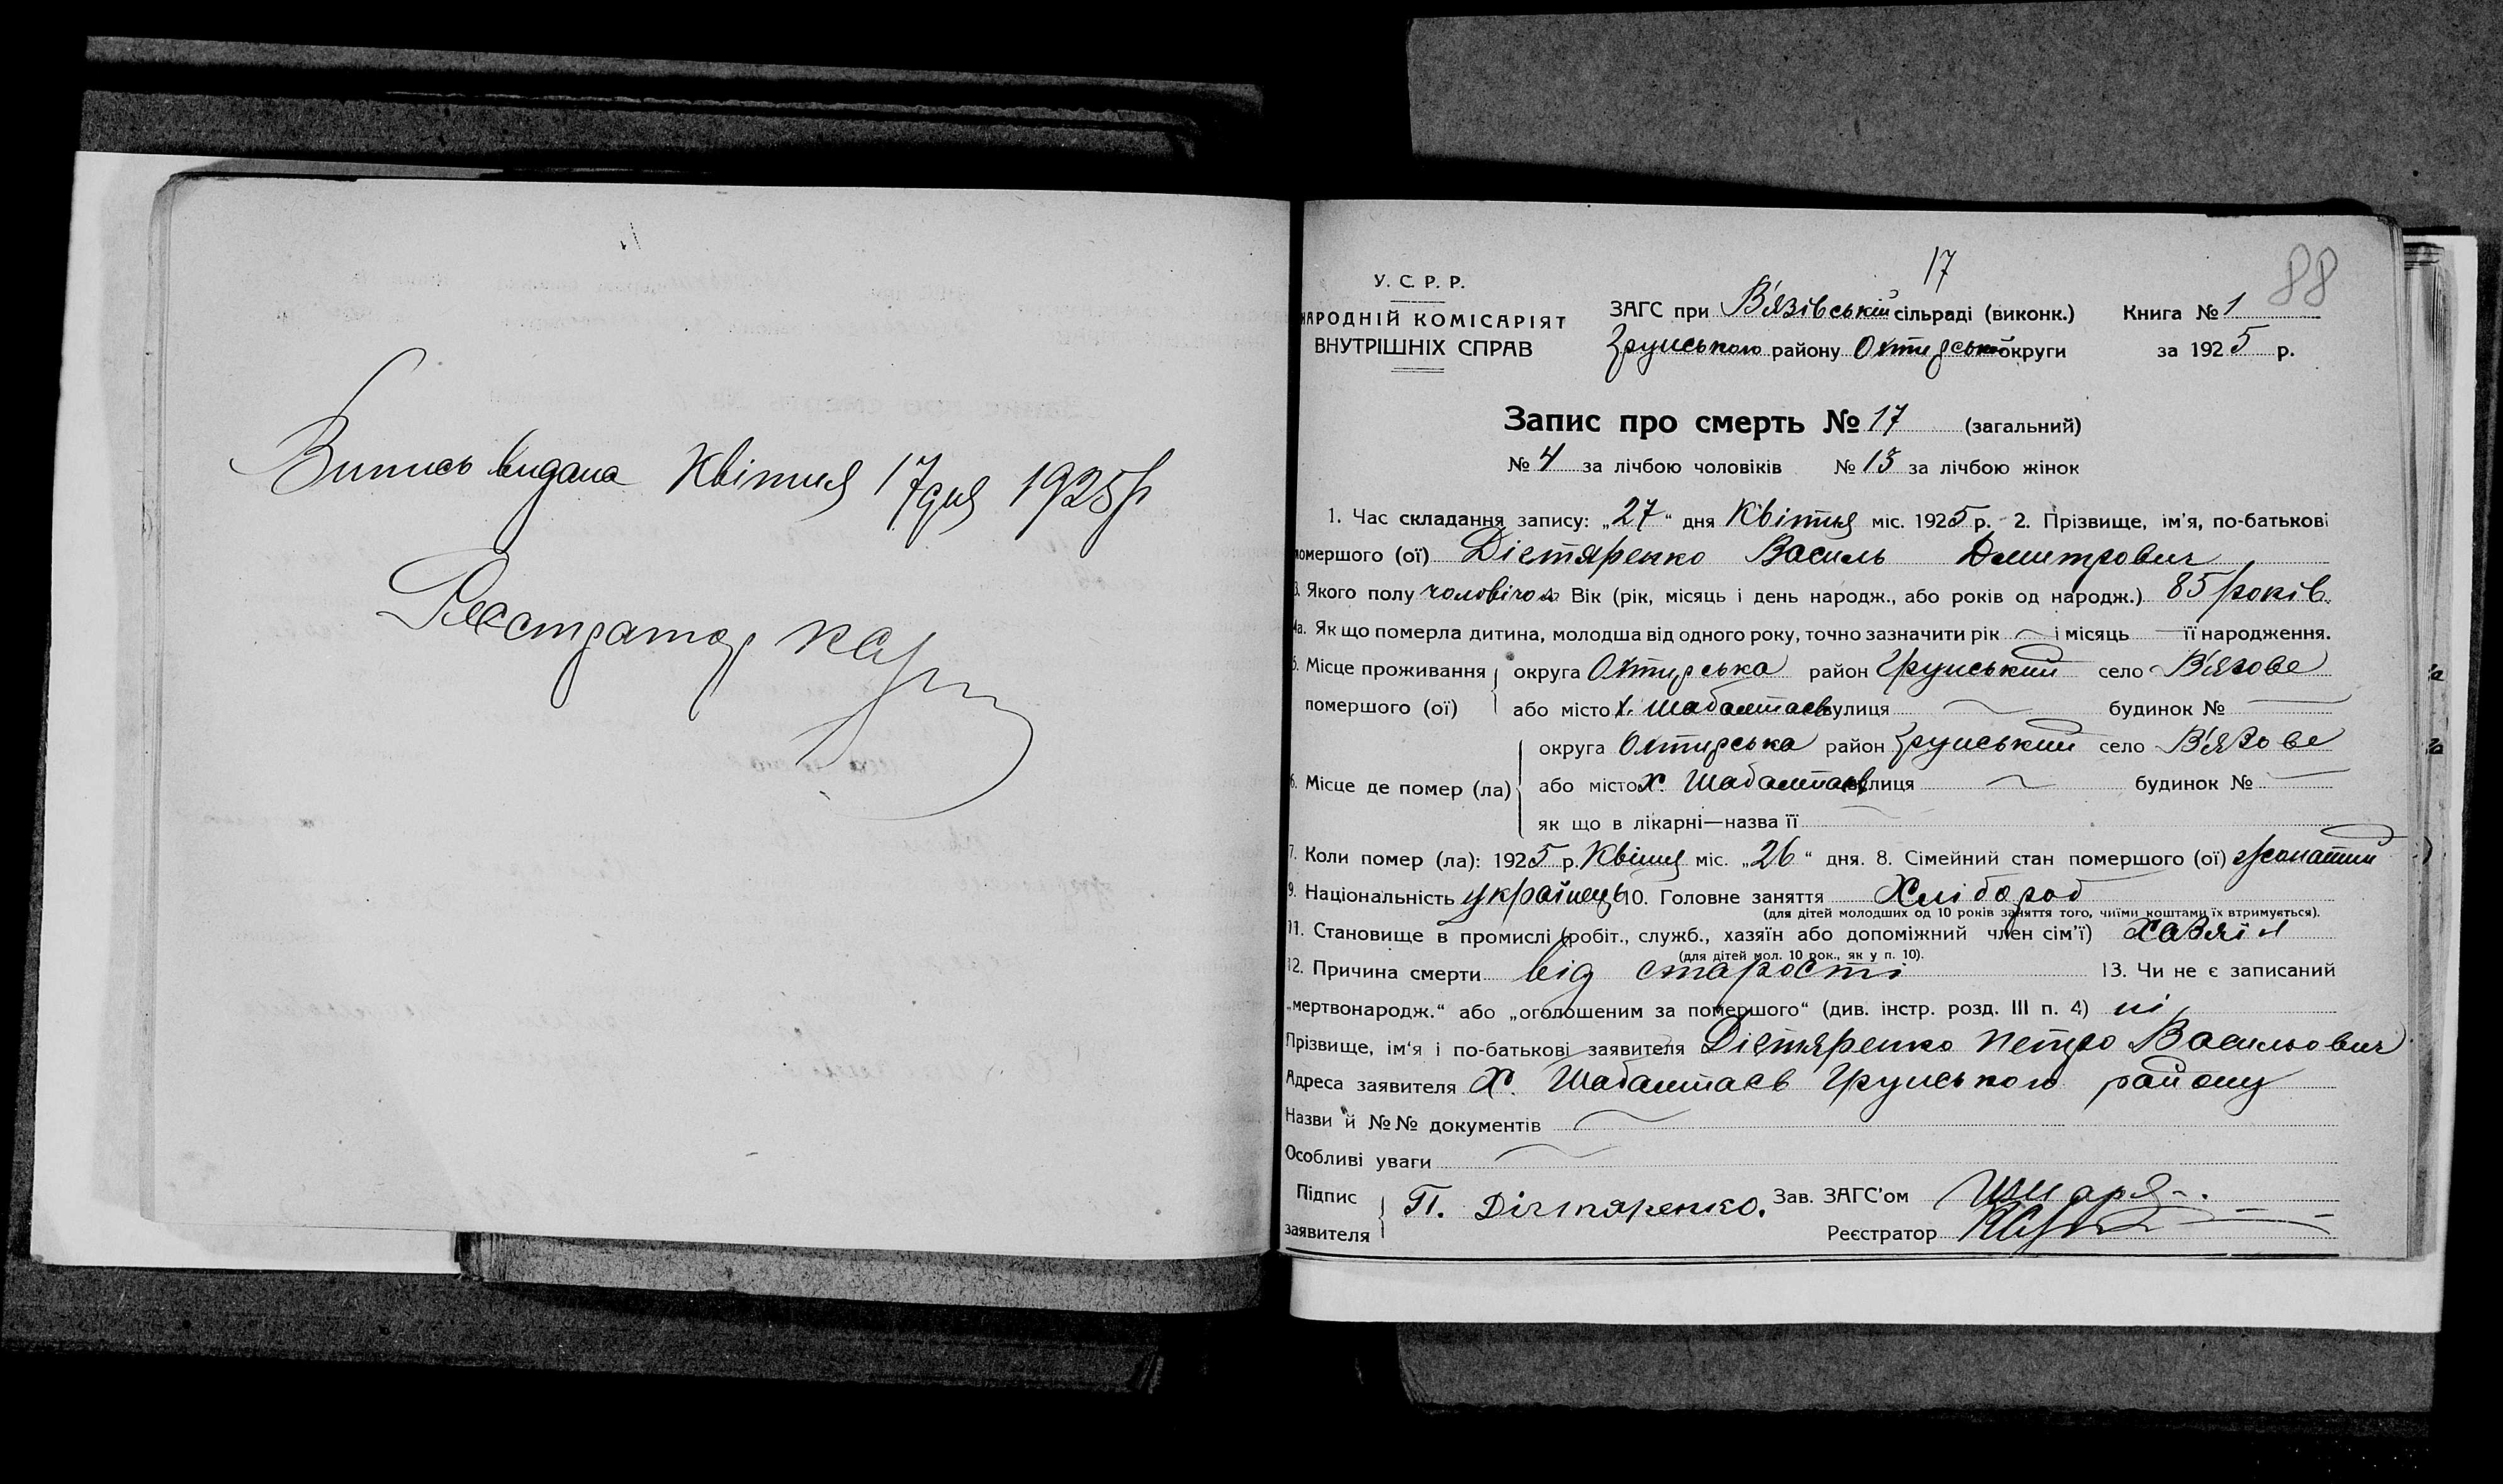 Витись видана Квітня 17 дня 1925 р
Реєстратор
17
88
У. С. Р. Р.
НАРОДНІЙ КОМІСАРІЯТ
ВНУТРІШНІХ СПРАВ
ЗАГС при В'язівській сільраді (виконк.)
Грунського району Охтирської округи
Книга № 1
за 1925 р.
Запис про смерть № 17 (загальний)
№ 4 за лічбою чоловіків № 13 за лічбою жінок
1. Час складання запису: „27“ дня Квітня міс. 1925 р. - 2. Прізвище, ім'я, по-батькові
помершого (ої) Дігтяренко Василь Дмитрович
3. Якого полу чоловічоа Вік (рік, місяць і день народж., або років од народж.) 85 років
4а. Як що померла дитина, молодша від одного року, точно зазначити рік ~ і місяць — її народження.
5. Місце проживання округа Охтирська район Грунський село В'язове
помершого (ої) або місто х. Шабалтаєв вулиця ~ будинок № —
6. Місце де помер (ла) округа Охтирська район Грунський село В'язове
або місто х. Шабалтаєв вулиця ~ будинок № —
як що в лікарні—назва її
7. Коли помер (ла): 1925 р. Квітня міс. „26“ дня. 8. Сімейний стан помершого (ої) жонатий
9. Національність українець 10. Головне заняття Хлібороб
(для дітей молодших од 10 років заняття того, чиїми коштами їх втримується).
11. Становище в промислі (робіт., служб., хазяїн або допоміжний член сім'ї) Хазяїн
(для дітей мол. 10 рок., як у п. 10).
12. Причина смерти від старості 13. Чи не є записаний
„мертвонародж.“ або „оголошеним за помершого“ (див. інстр. розд. III п. 4) ні
Прізвище, ім'я і по-батькові заявителя Дігтяренко Петро Васильович
Адреса заявителя Х. Шабалтаєв Грунського району
Назви й №№ документів ~
Особливі уваги ~
Підпис заявителя П. Дігтяренко. Зав. ЗАГС'ом
Реєстратор